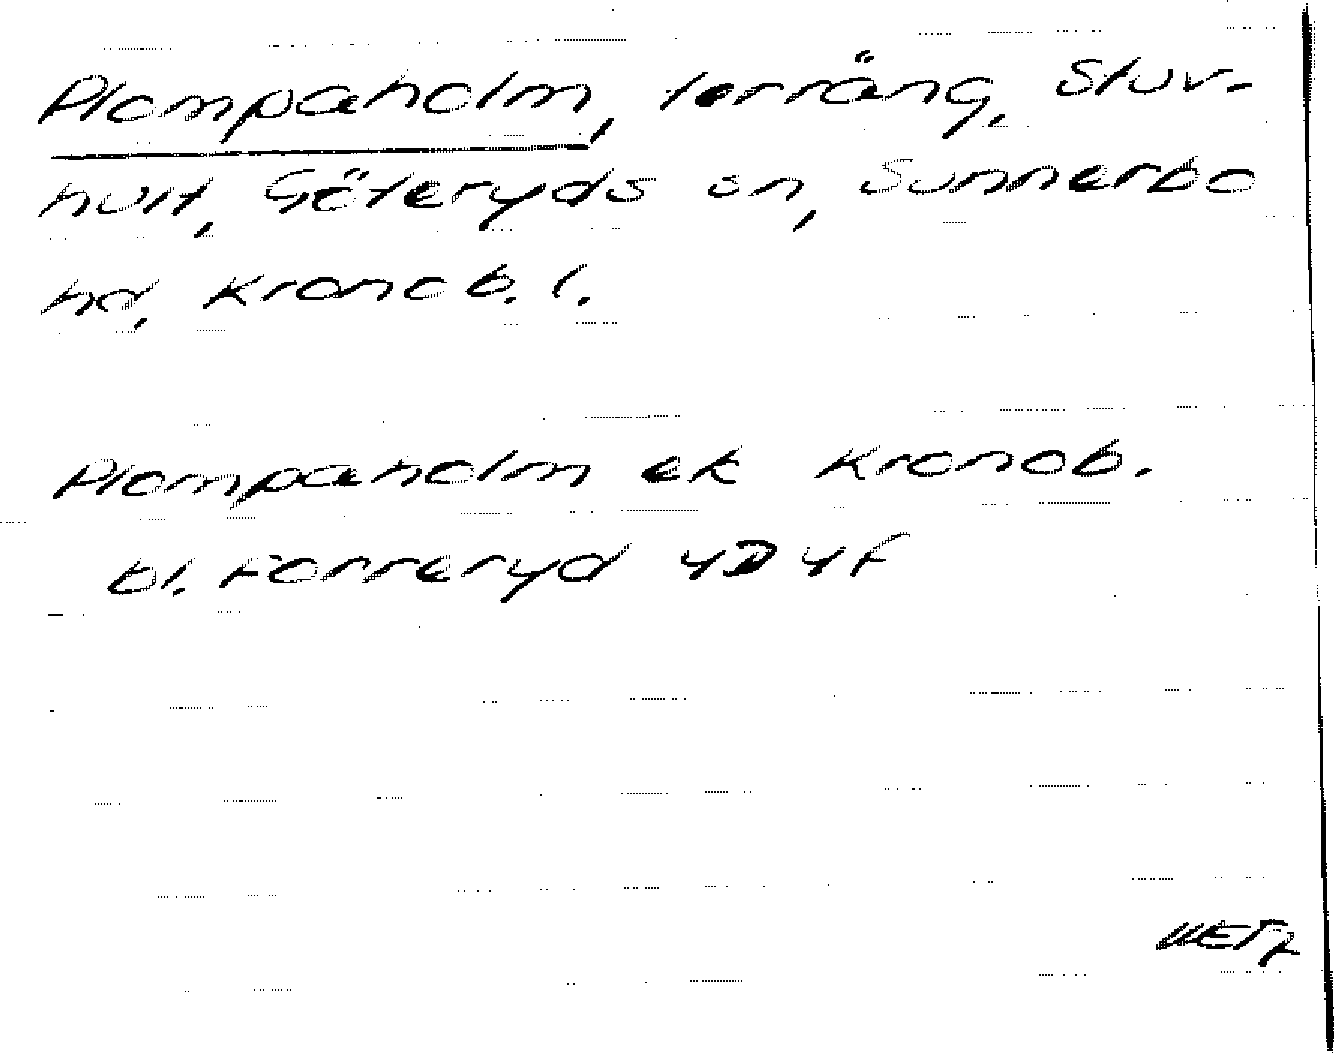 Plompaholm, terräng, Stuv-
hult, Göteryds sn, Sunnerbo
hd, Kronob. l.
Plompaholm ek Kronob.
bl. Torreryd 4D 4f